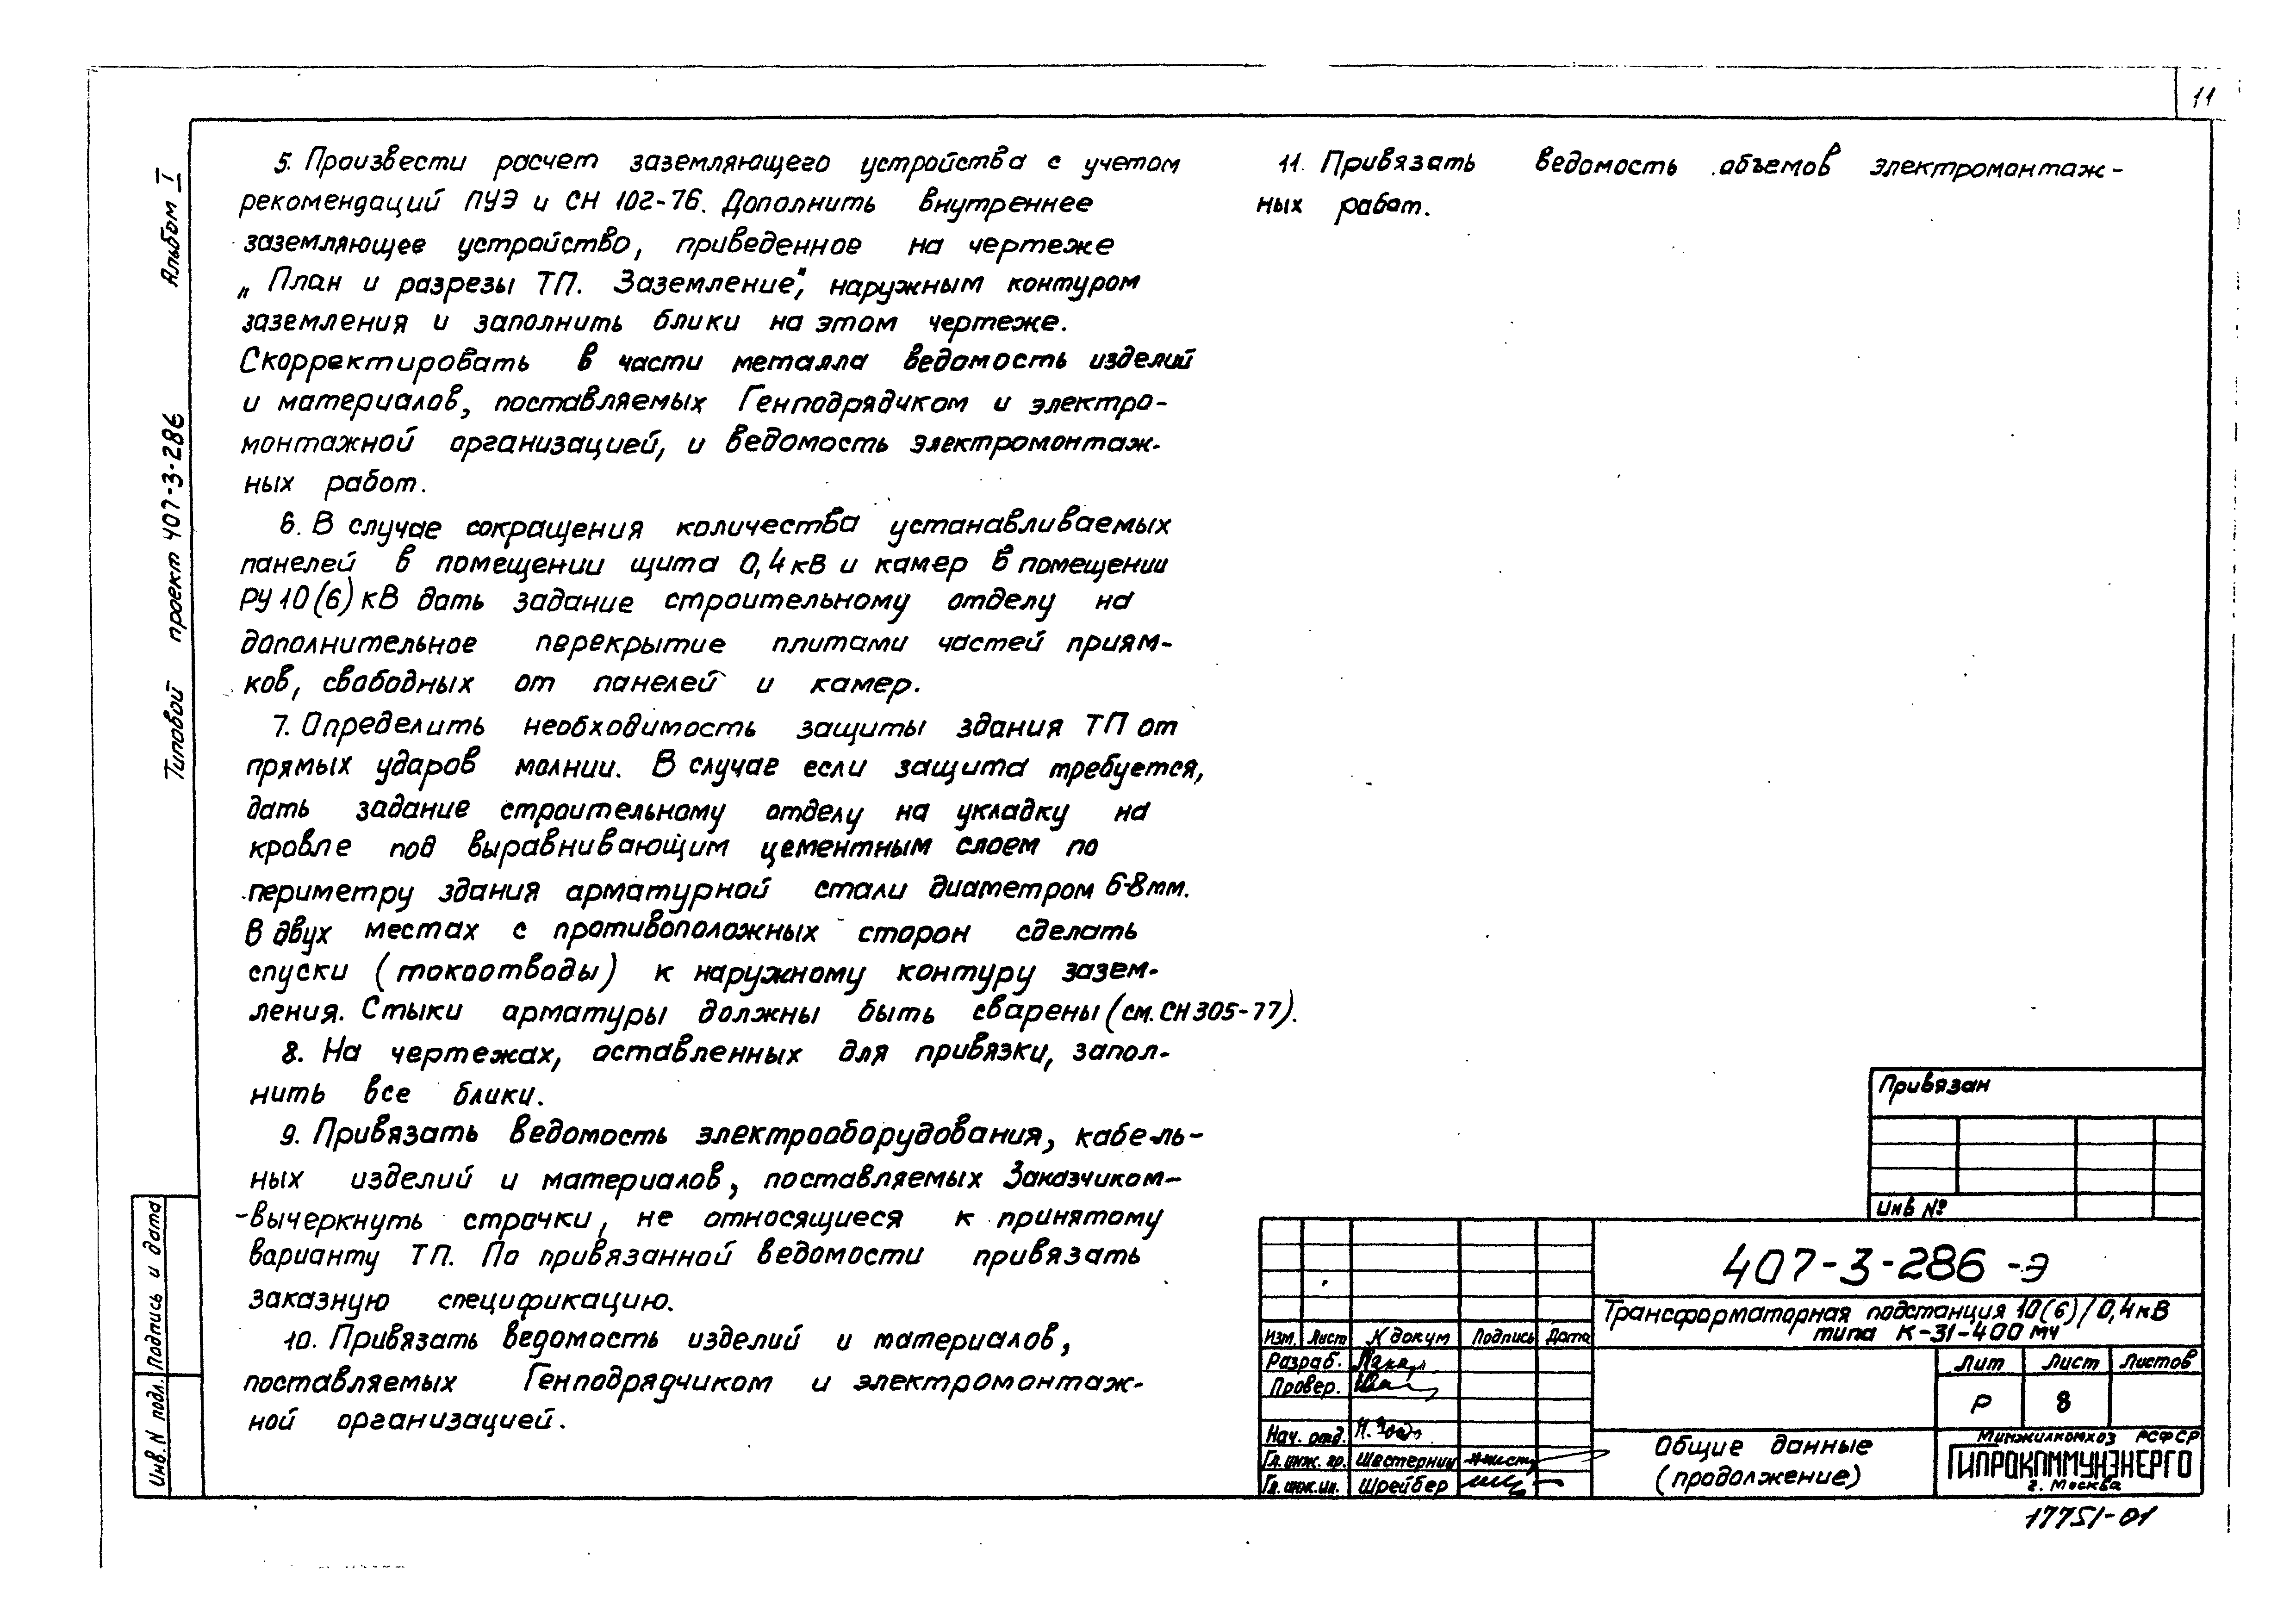 11
Альбом I
Типовой проект 407-3-286
5. Произвести расчет заземляющего устройства с учетом
рекомендаций ПУЭ и СН 102-76. Дополнить внутреннее
заземляющее устройство, приведенное на чертеже
„План и разрезы ТП. Заземление", наружным контуром
заземления и заполнить блики на этом чертеже.
Скорректировать в части металла ведомость изделий
и материалов, поставляемых Генподрядчком и электро-
монтажной организацией, и ведомость электромонтаж-
ных работ.
6. В случае сокращения количества устанавливаемых
панелей в помещении щита 0,4 кВ и камер в помещении
РУ 10(6) кВ дать задание строительному отделу на
дополнительное перекрытие плитами частей приям-
ков, свободных от панелей и камер.
7. Определить необходимость защиты здания ТП от
прямых ударов молнии. В случае если защита требуется,
дать задание строительному отделу на укладку на
кровле под выравнивающим цементным слоем по
периметру здания арматурной стали диаметром 6-8мм.
В двух местах с противоположных сторон сделать
спуски (токоотводы) к наружному контуру зазем-
ления. Стыки арматуры должны быть сварены (см. СН 305-77).
8. На чертежах, оставленных для привязки, запол-
нить все блики.
9. Привязать ведомость электрооборудования, кабель-
ных изделий и материалов, поставляемых Заказчиком-
-вычеркнуть строчки, не относящиеся к принятому
варианту ТП. По привязанной ведомости привязать
заказную спецификацию.
10. Привязать ведомость изделий и материалов,
поставляемых Генподрядчиком и электромонтаж-
ной организацией.
11. Привязать ведомость объемов электромонтаж-
ных работ.
Подпись и дата
Инв. N подл.
Привязан
Инв №
407-3-286 -Э
Трансформаторная подстанция 10(6)/0,4кВ
типа К-31-400 мч
Изм. Лист N докум Подпись Дата
Разраб.
Провер.
Нач. отд.
Гл. инж. пр. Шестернин
Гл. инж. ин. Шрейбер
Лит Лист Листов
Р 8
Общие данные
(продолжение)
Минжилкомхоз РСФСР
ГИПРОКОММУНЭНЕРГО
г. Москва
17751-01